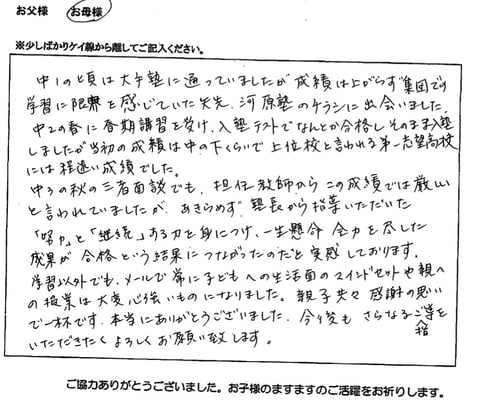 お父様 お母様
※少しばかりケイ線から離してご記入ください。
中1の頃は大手塾に通っていましたが成績は上がらず集団での
学習に限界を感じていた矢先、河原塾のチラシに出会いました。
中2の春に春期講習を受け、入塾テストでなんとか合格しそのまま入塾
しましたが当初の成績は中の下くらいで上位校と言われる第一志望高校
には程遠い成績でした。
中3の秋の三者面談でも、担任教師からこの成績では厳しい
と言われていましたが、あきらめず塾長から指導いただいた
「努力」と「継続」する力を身につけ、一生懸命全力を尽した
成果が合格という結果につながったのだと実感しております。
学習以外でも、メールで常に子どもへの生活面のマインドセットや親へ
の授業は大変心強いものになりました。親子共々感謝の思い
で一杯です。本当にありがとうございました。今後も さらなるご
いただきたくよろしくお願い致します。
ご協力ありがとうございました。お子様のますますのご活躍をお祈りします。